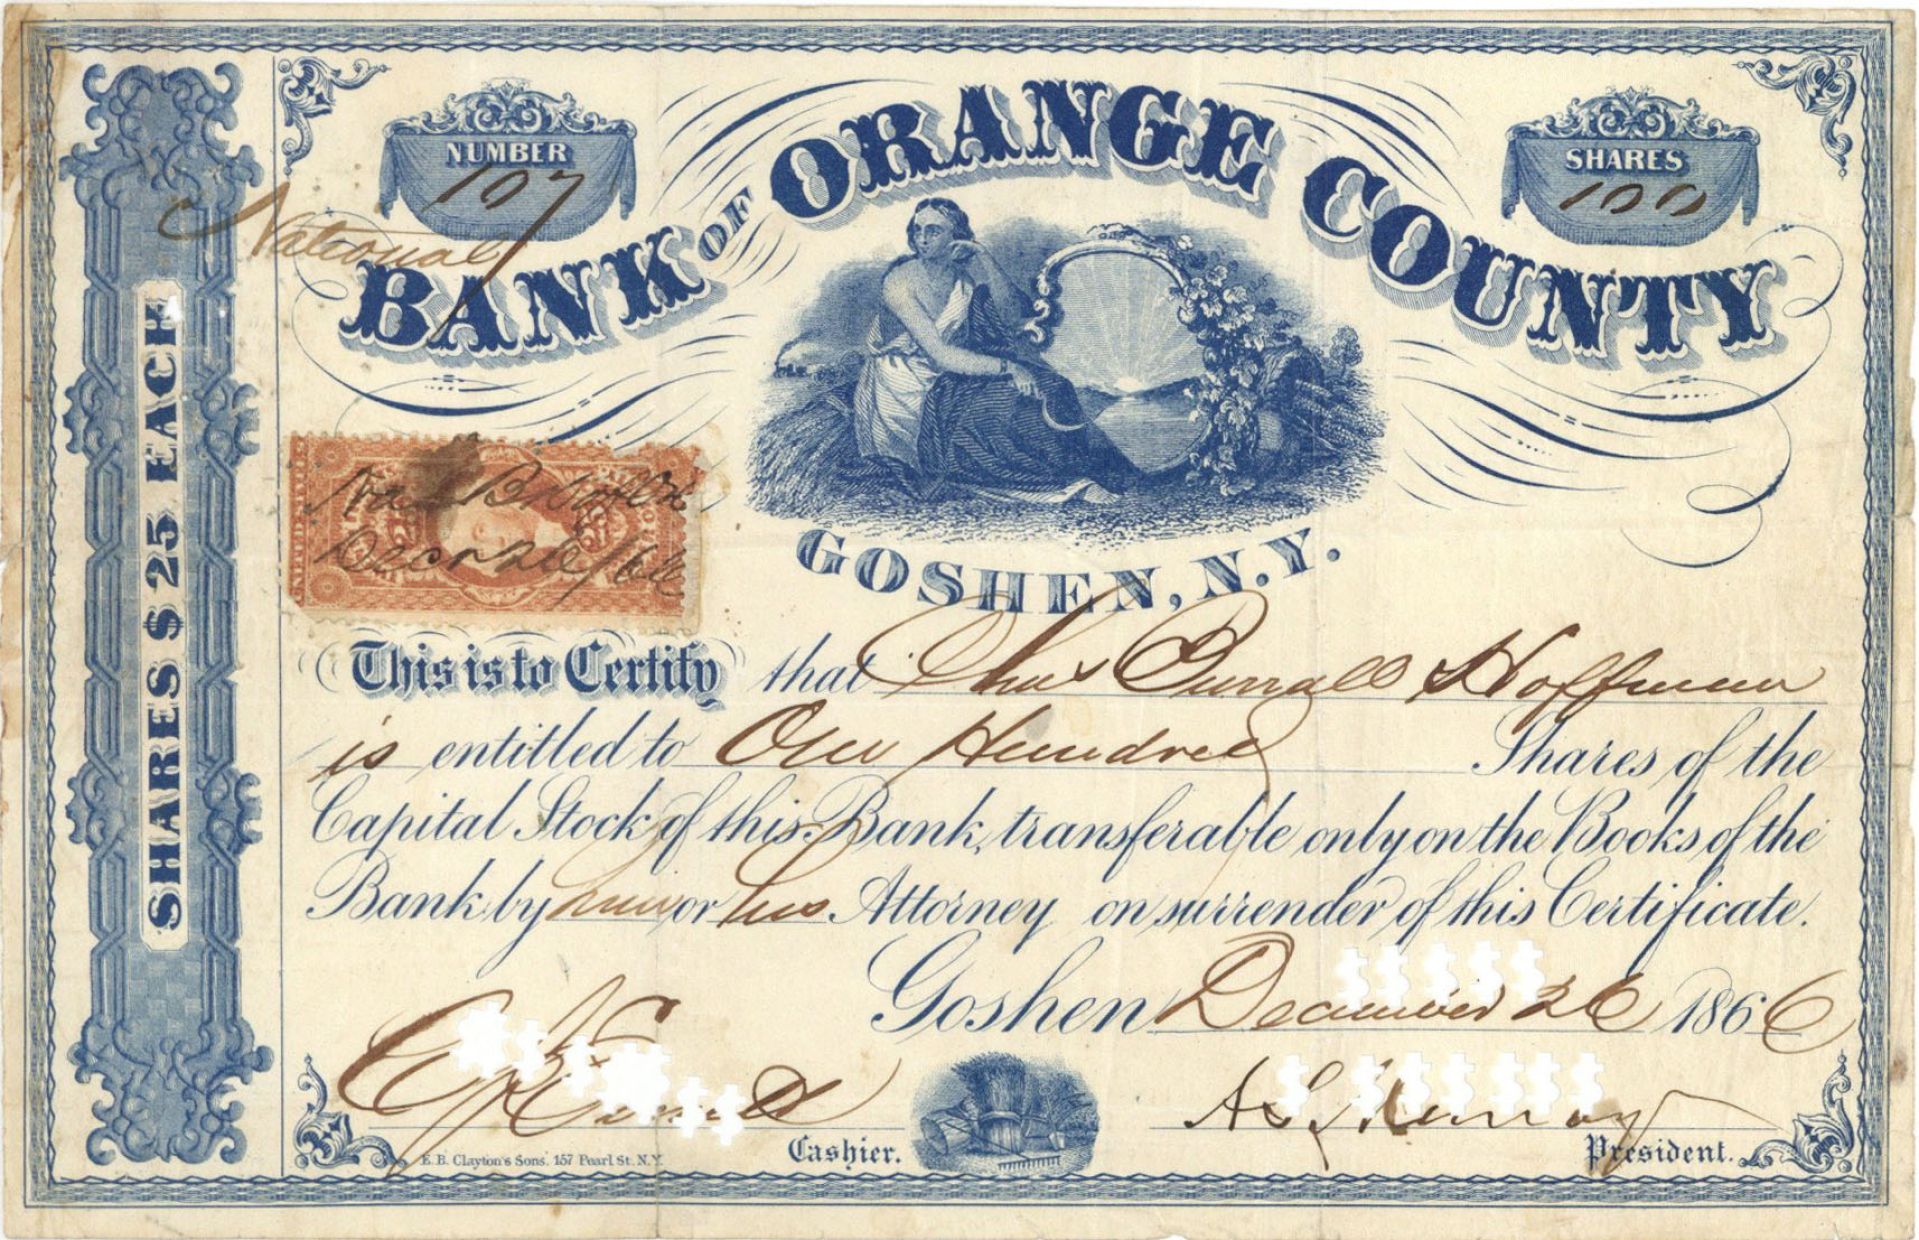 NUMBER
107
SHARES
100
National
BANK OF ORANGE COUNTY
GOSHEN, N.Y.
SHARES $25 EACH
25 25
Nat B
Decr 26/66
This is to Certify that Chas Purrall Hoffman
is entitled to One Hundred Shares of the
Capital Stock of this Bank, transferable only on the Books of the
Bank by him or his Attorney on surrender of this Certificate.
Goshen December 26 1866
Cashier.
A S Murray
President.
E. B. Clayton's Sons. 157 Pearl St. N.Y.